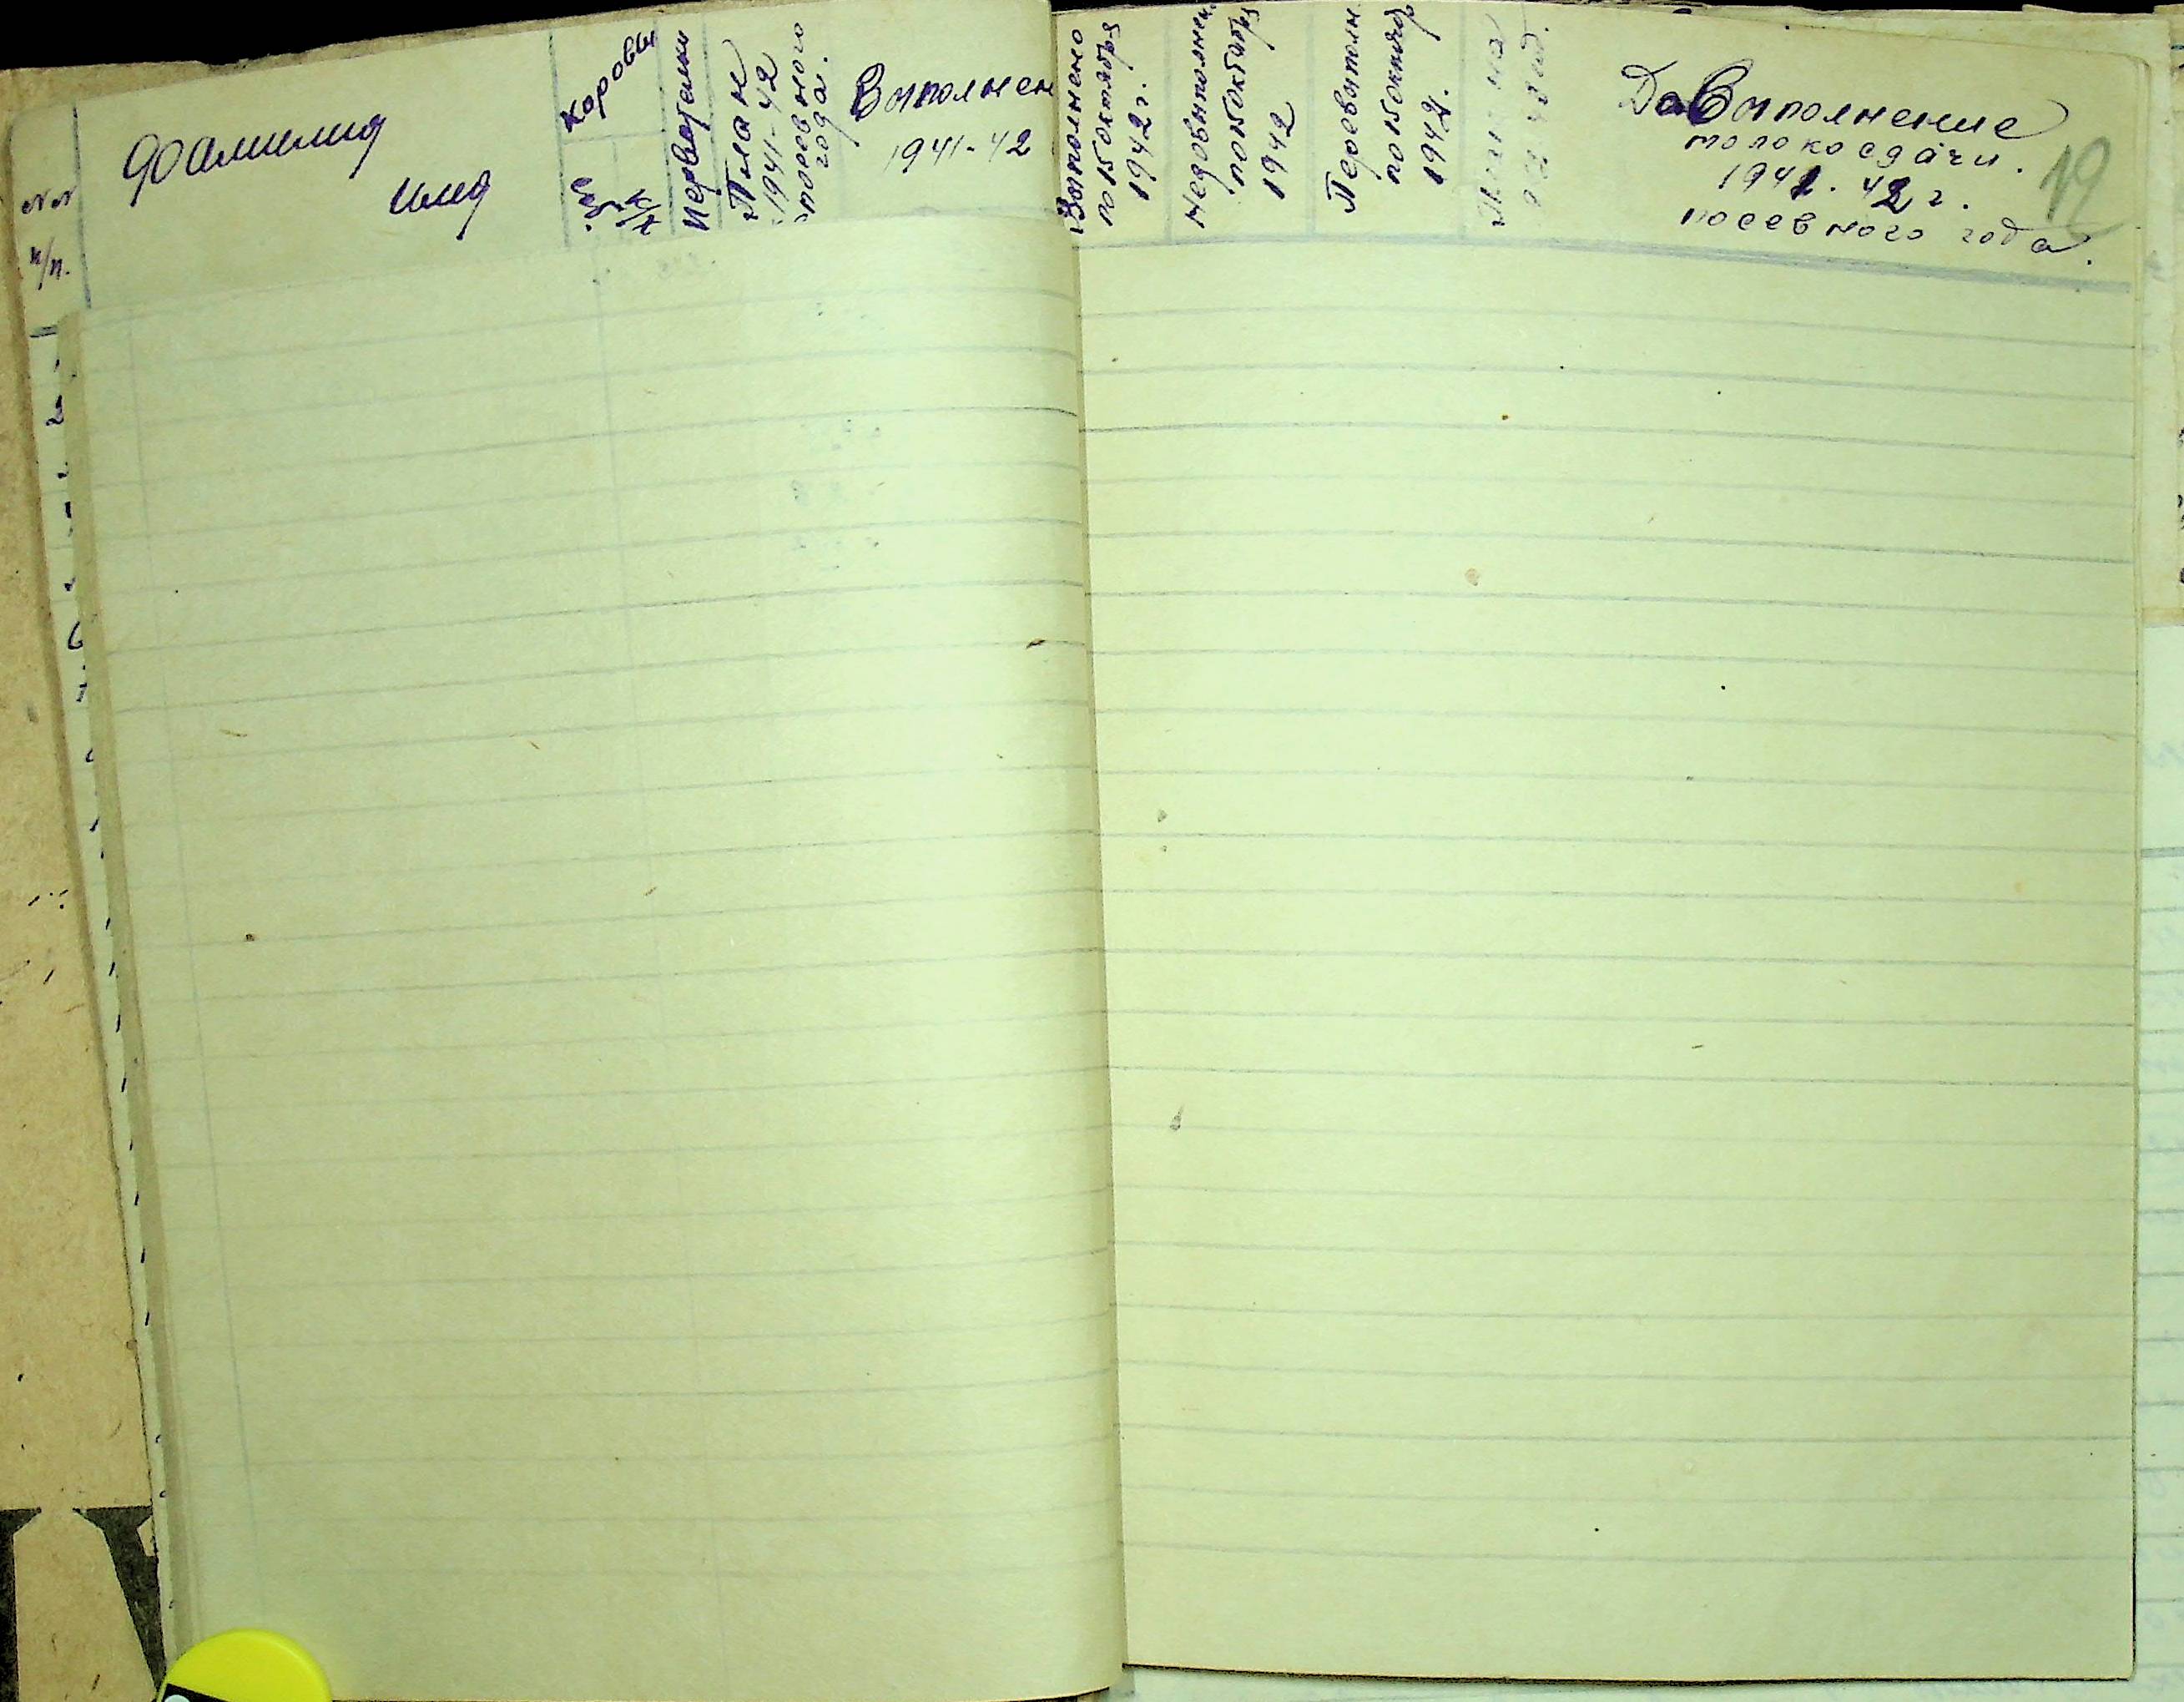 №№
п/п.
Фамилия
имя
Коровы
Первотелки
План
1941-42
посевного
года.
Выполнен
1941-42
Выполнено
по 15 октября
1942 г.
Недовыполнен
по 15 октября
1942
Перевыполн
по 15 октября
1942.
ДоВыполнение
молокосдачи.
1941-42 г.
посевного года.
12